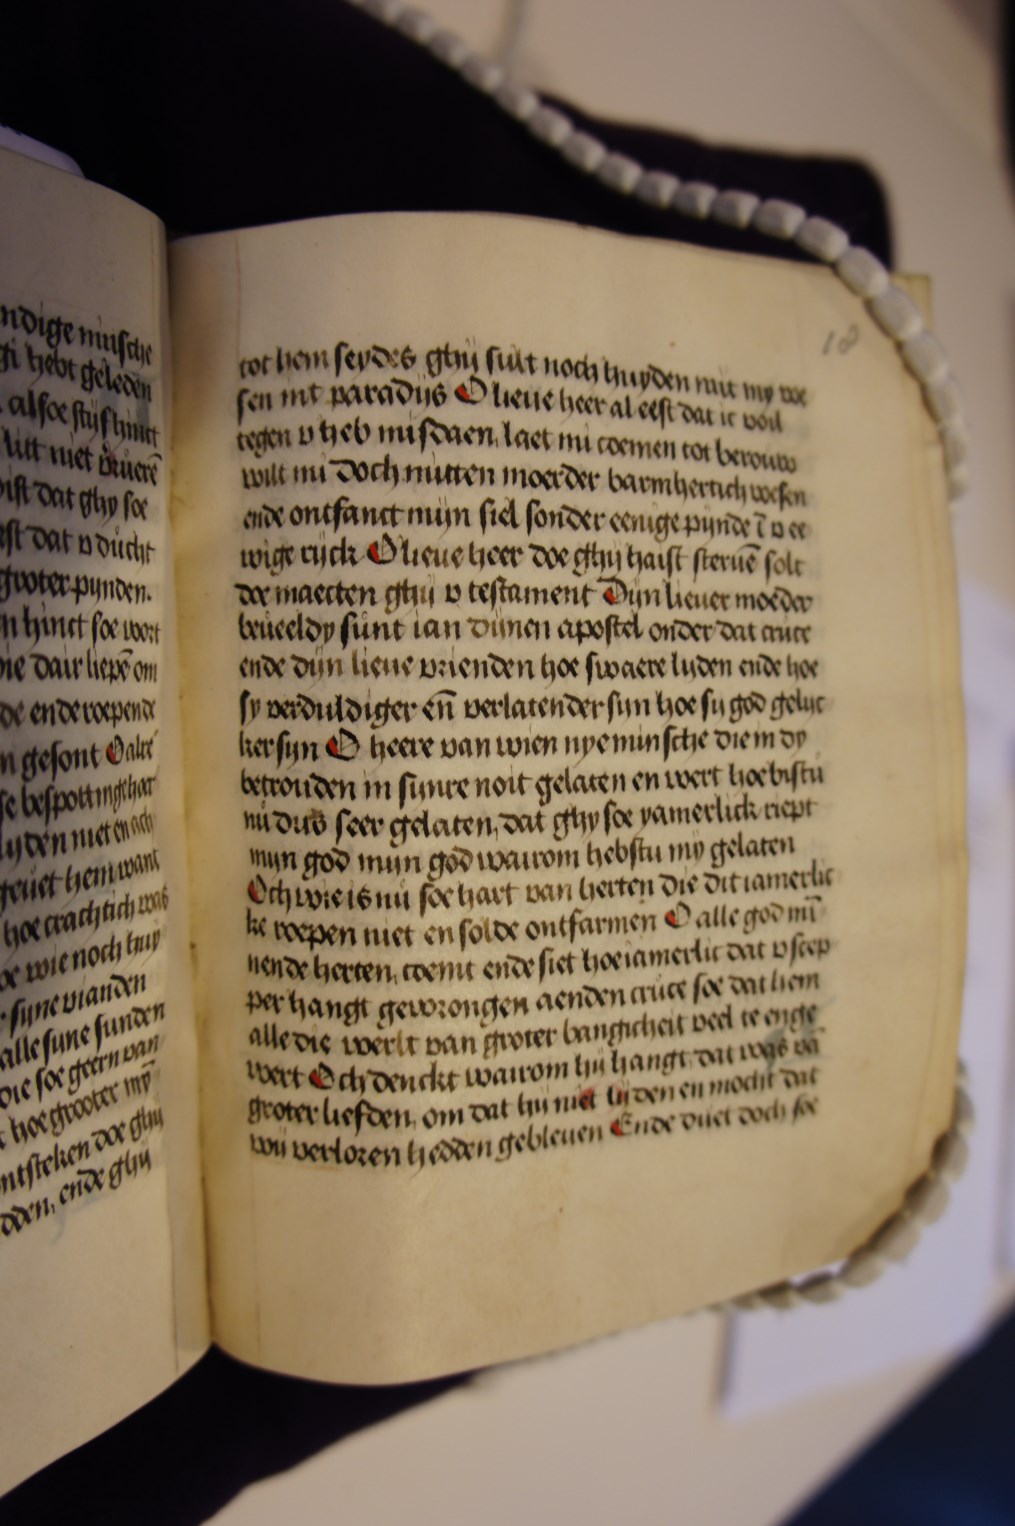 ndige minsche
gi hebt geleden
alsoe stijf hinct
litt niet
ist dat ghy soe
st dat v ducht
groter pynden.
n hinct soe wert
ie dair liepē om
de ende roepende
n gesont O alre
se bespottinge
lyden niet en ach
geuet hem want
hoe crachtich was
oe wie noch huy
sijne vianden
alle sijne sunden
die soe geern van
hoe grooter mȳ
ntsteken doe ghij
dden, ende ghij
18
tot hem seydes ghij sult noch huyden mit my we
sen int paradijs O lieue heer al eest dat ic voil
tegen v heb misdaen, laet mi coemen tot berouw
wilt mi doch mitten moerder barmhertich wesen
ende ontfanct mijn siel sonder eenige pijnde ī v ee
wige rijck O lieue heer doe ghij haist steruē solt
doe maecten ghij v testament Dijn lieuer moeder
beueeldy sunt ian dijnen apostel onder dat cruce
ende dijn lieue vrienden hoe swaere lijden ende hoe
sy verduldiger eñ verlatender sijn hoe sij god gelijc
ker sijn O heere van wien nye minsche die in dy
betrouden in sijnre noit gelaten en wert hoe bistu
nu dus seer gelaten, dat ghy soe yamerlick riept
mijn god mijn god wairom hebstu my gelaten
Och wie is nu soe hart van herten die dit iamerlic
ke roepen niet en solde ontfarmen O alle god mī
nende herten, coemt ende siet hoe iamerlic dat v scep
per hangt gewrongen aenden cruce soe dat hem
alle die werlt van groter bangicheit veel te enge
wert Och denckt wairom hij hangt dat was vā
groter liefden, om dat hij niet lijden en mocht dat
wij verloren hedden gebleuen Ende duet doch soe